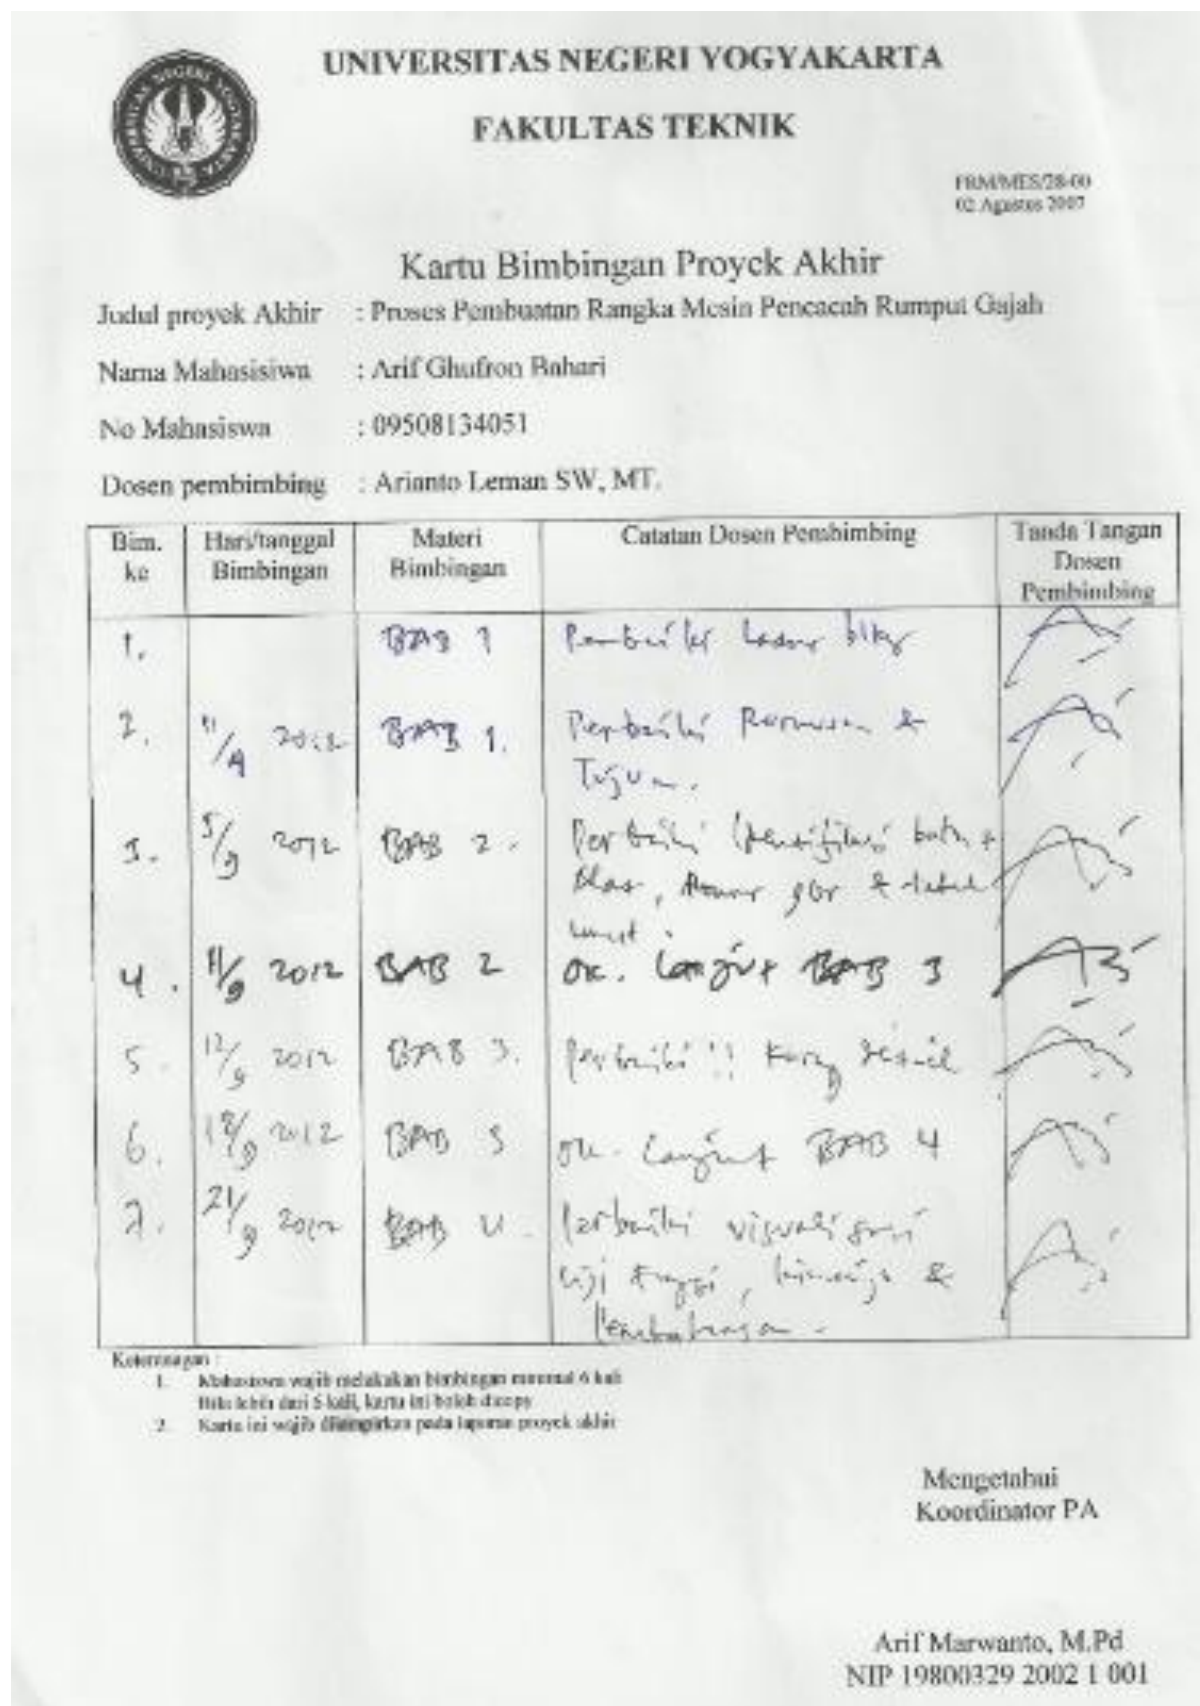 UNIVERSITAS NEGERI YOGYAKARTA
FAKULTAS TEKNIK
UNIVERSITAS NEGERI YOGYAKARTA
FRM/MES/28-00
02 Agustus 2007
Kartu Bimbingan Proyek Akhir
Judul proyek Akhir : Proses Pembuatan Rangka Mesin Pencacah Rumput Gajah
Nama Mahasisiwa : Arif Ghufron Bahari
No Mahasiswa : 09508134051
Dosen pembimbing : Arianto Leman SW, MT.
Bim. ke Hari/tanggal Bimbingan Materi Bimbingan Catatan Dosen Pembimbing Tanda Tangan Dosen Pembimbing
1. BAB 1 Perbaiki
2. 2012 BAB 1. Perbaiki &
Tujuan.
3. 5/9 2012 BAB 2. Perbaiki
&
4. 11/9 2012 BAB 2 OK. Lanjut BAB 3
5. 12/9 2012 BAB 3. Perbaiki!!
6. 18/9 2012 BAB 3 OK. Lanjut BAB 4
7. 21/9 2012 BAB 4. Perbaiki
uji &
Keterangan :
1. Mahasiswa wajib melakukan bimbingan minimal 6 kali
Bila lebih dari 5 kali, kartu ini boleh dicopy
2. Kartu ini wajib dilampirkan pada laporan proyek akhir
Mengetahui
Koordinator PA
Arif Marwanto, M.Pd
NIP 19800329 2002 1 001